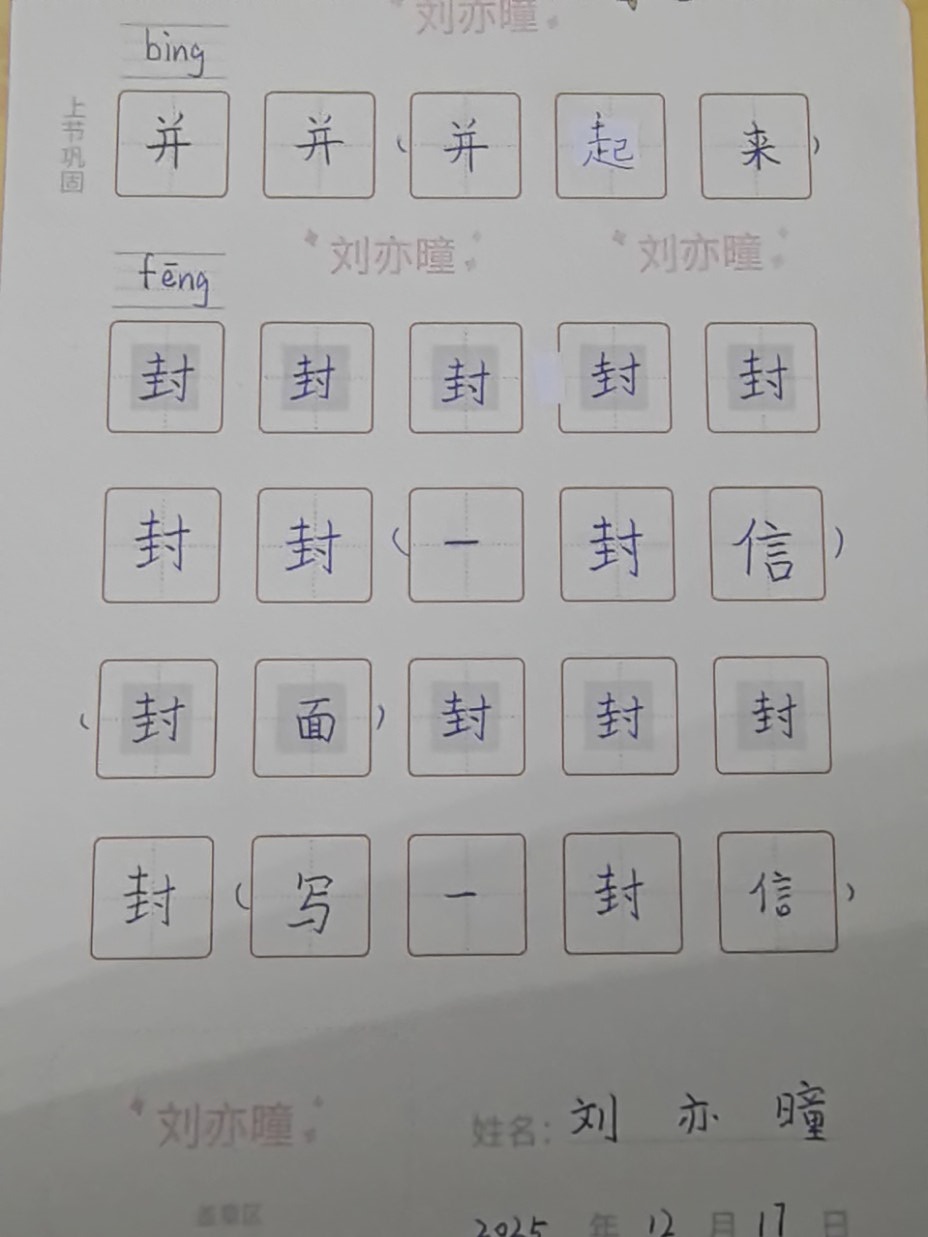 刘亦瞳
bing
上节巩固
并 并（并 起 来）
刘亦瞳 刘亦瞳
fēng
封 封 封 封 封
封 封（一 封 信）
（封 面）封 封 封
封（写 一 封 信）
刘亦瞳
姓名：刘 亦 瞳
盖章区
2025 年 12 月 17 日